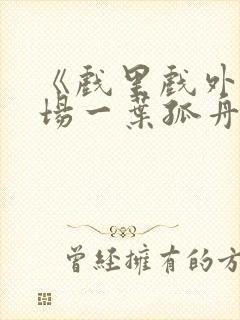 《戲里戲外
場一葉孤舟
曾經擁有的方